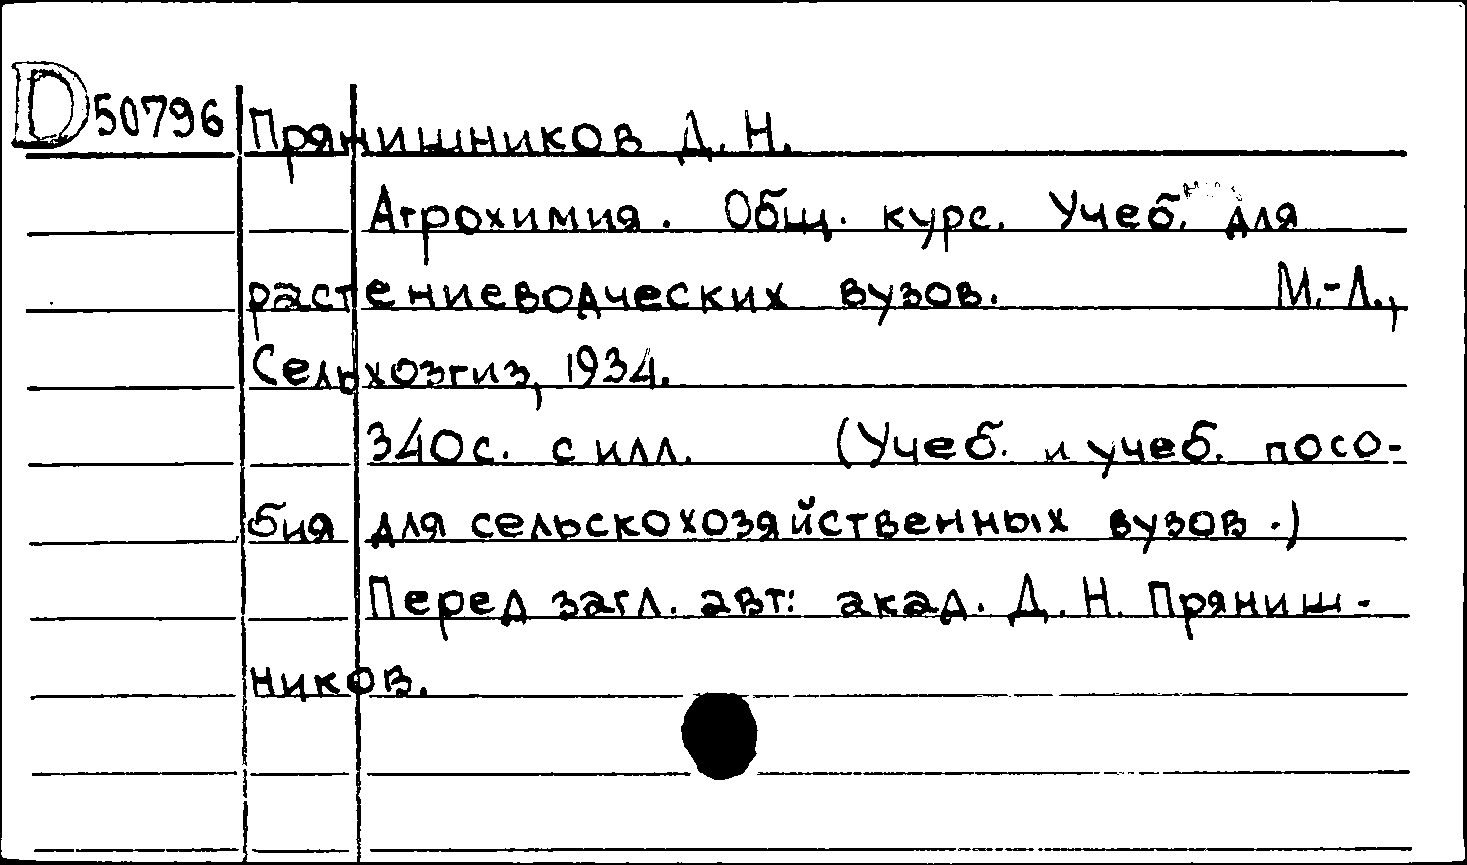 D 50796 Прянишников Д. Н.
Агрохимия. Общ. курс. Учеб. для
растениеводческих вузов. М.-Л.,
Сельхозгиз, 1934.
340с. с илл. (Учеб. и учеб. посо-
бия для сельскохозяйственных вузов.)
Перед загл. авт: акад. Д. Н. Пряниш-
ников.